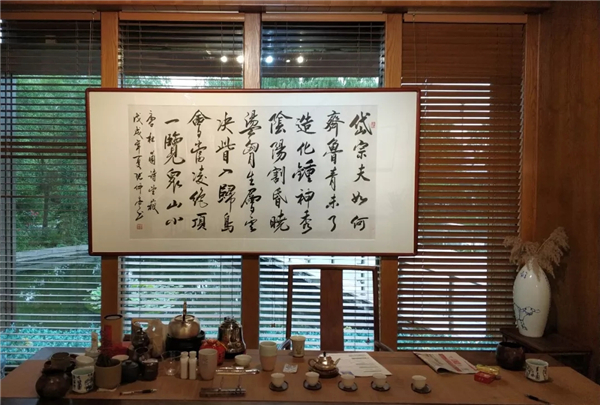 岱宗夫如何
齊魯青未了
造化鍾神秀
陰陽割昏曉
盪胷生層雲
決眥入歸鳥
會當凌絕頂
一覽眾山小
唐杜甫詩望嶽
戊戌年夏